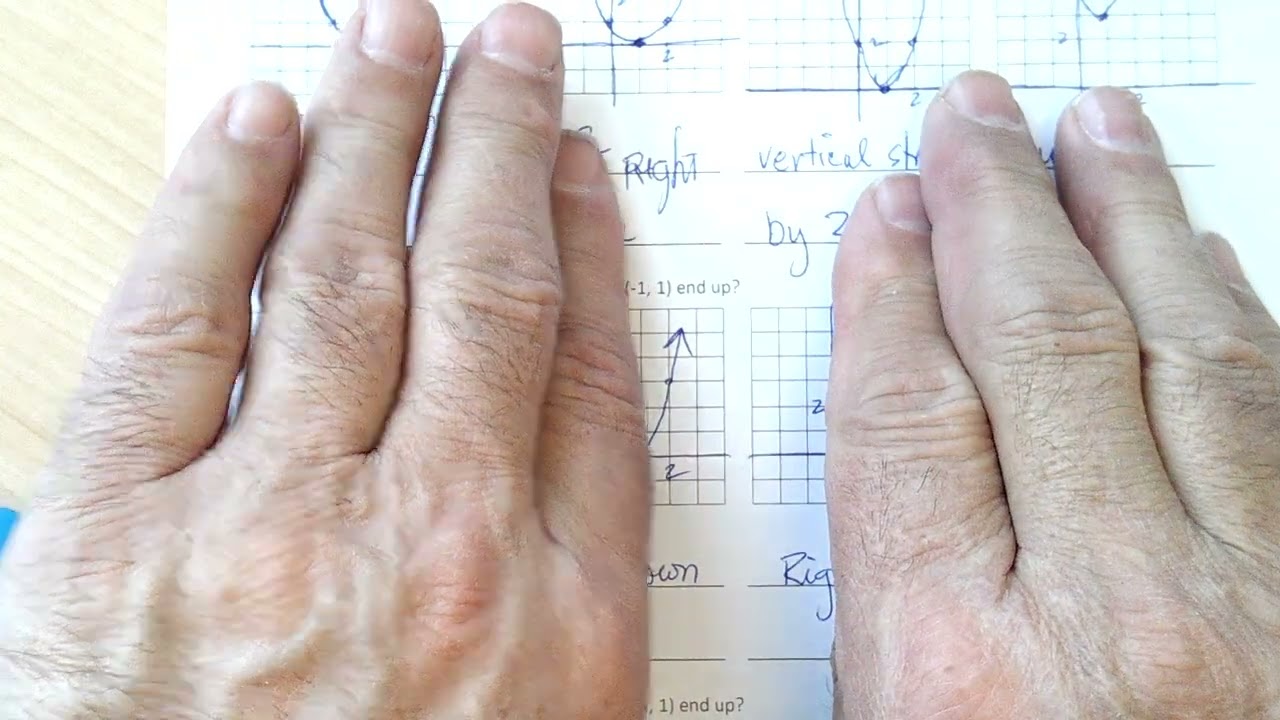 2 2
-2 2
Right vertical
by 2
(-1, 1) end up?
2
2
own Rig
, 1) end up?